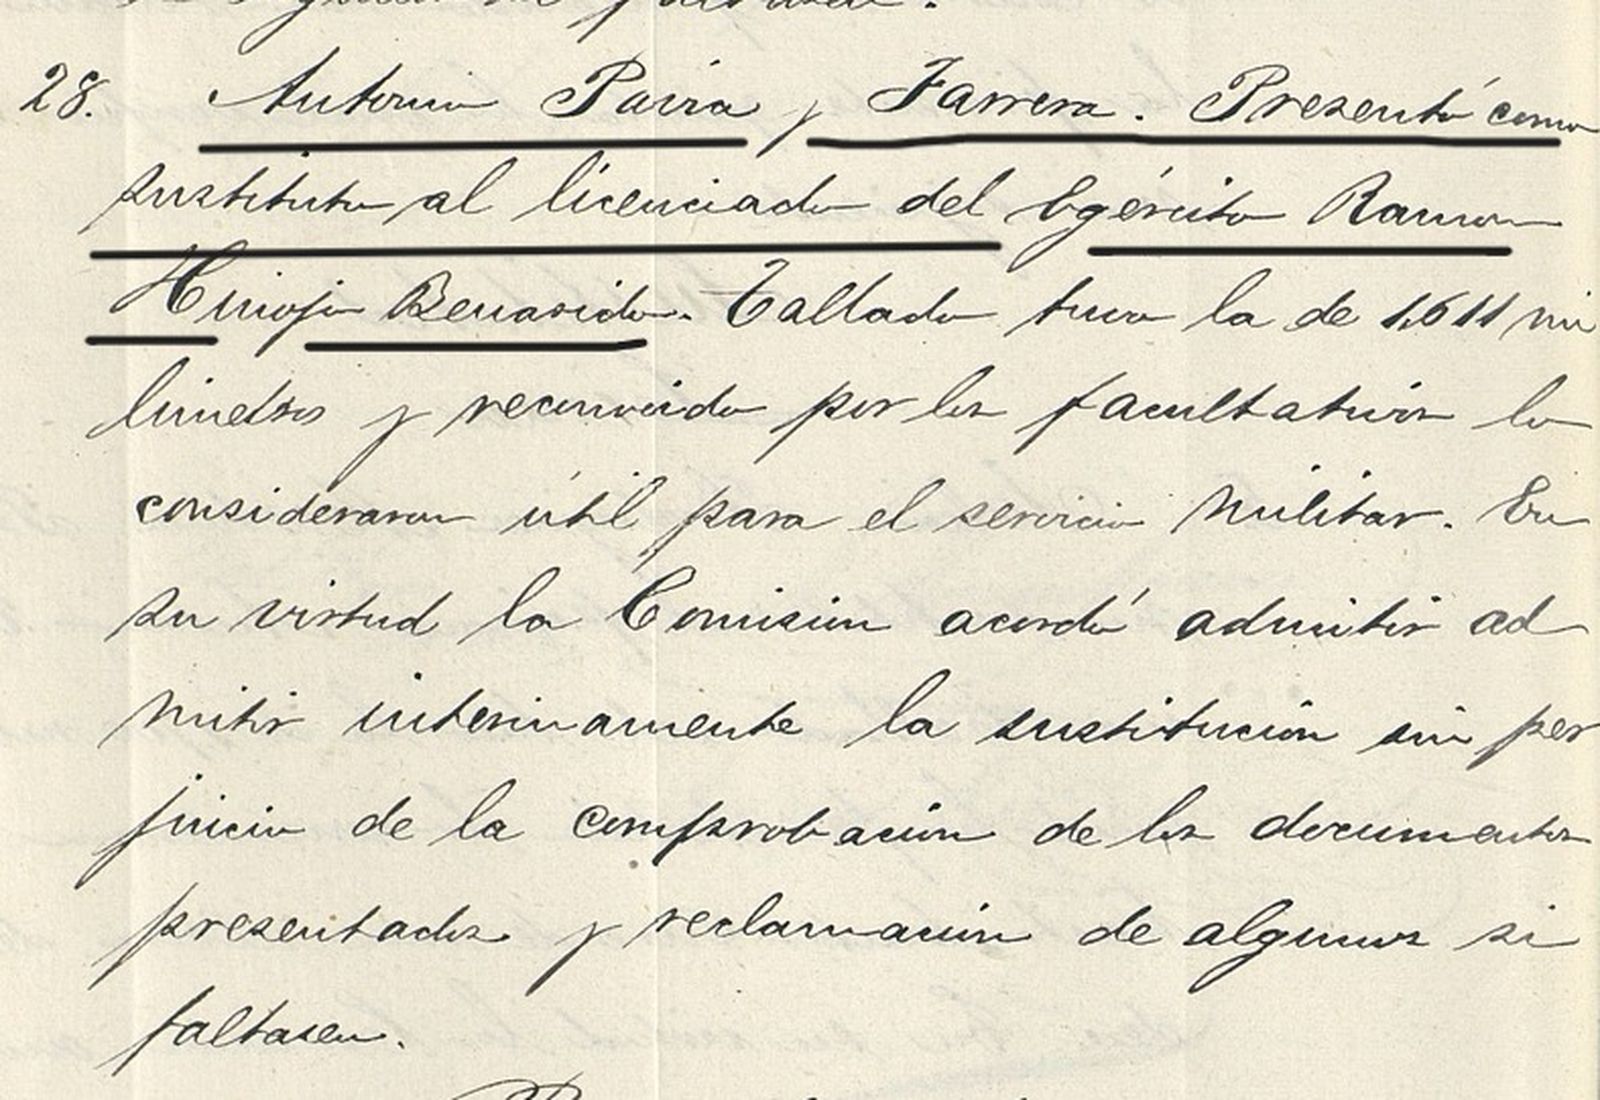 28. Antonio Pavia y Farrera. Presentó como
sustituto al licenciado del Egército Ramon
Hinojo Benasido. Tallado tuvo la de 1,611 mi
limetros y reconocido por los facultativos lo
consideraron útil para el servicio militar. En
su virtud la Comision acordó admitir ad
mitir interinamente la sustitución sin per
juicio de la comprobación de los documentos
presentados y reclamación de algunos si
faltasen.